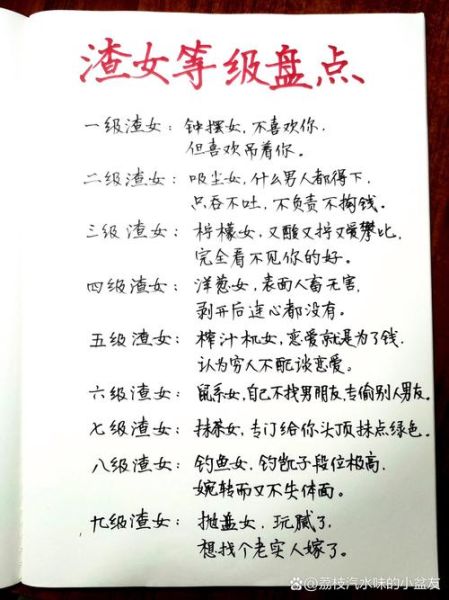 渣女等级盘点
一级渣女：钟摆女，不喜欢你，
但喜欢吊着你。
二级渣女：吸尘女，什么男人都得下，
只吞不吐，不负责不掏钱。
三级渣女：柠檬女，又酸又拧又爱攀比，
完全看不见你的好。
四级渣女：洋葱女，表面人畜无害，
剥开后连心都没有。
五级渣女：榨汁机女，恋爱就是为了钱，
认为穷人不配谈恋爱。
六级渣女：鼠系女，自己不找男朋友，专偷别人男友。
七级渣女：抹茶女，专门给你头顶抹点绿色。
八级渣女：钓鱼女，钓凯子段位极高，
婉转而又不失体面。
九级渣女：抛盘女，玩腻了，
想找个老实人嫁了。
@荔枝汽水味的小盆友